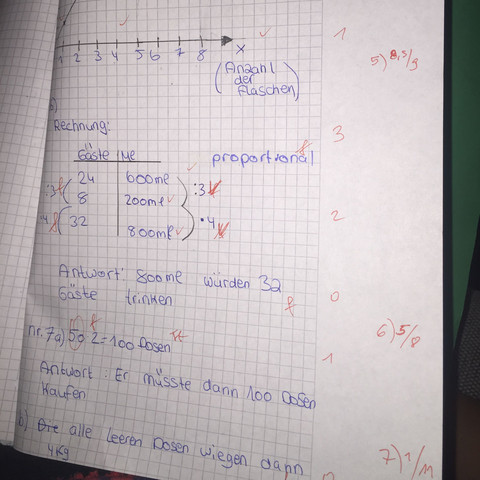 1 2 3 4 5 6 7 8 x
1
(Anzahl
der
Flaschen)
5) 8,5/9
Rechnung:
3
Gäste me
f
proportional
:3 24 600me :3
8 200me
2
·4 32 800me ·4
Antwort: 800me würden 32
0
Gäste trinken
f
6) 5/8
nr. 7a) 50 2 = 100 Dosen
1
Antwort: Er müsste dann 100 Dosen
Kaufen
b) alle leeren Dosen wiegen dann
4Kg
7) 1/11
0